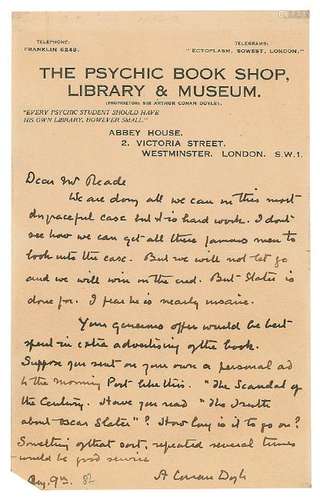 TELEPHONE:
FRANKLIN 6248.
TELEGRAMS:
"ECTOPLASM, SOWEST, LONDON."
THE PSYCHIC BOOK SHOP,
LIBRARY & MUSEUM.
(PROPRIETOR: SIR ARTHUR CONAN DOYLE).
"EVERY PSYCHIC STUDENT SHOULD HAVE
HIS OWN LIBRARY, HOWEVER SMALL."
ABBEY HOUSE,
2, VICTORIA STREET,
WESTMINSTER, LONDON, S.W.1.
Dear Mr Reade
We are doing all we can in this most
disgraceful case but it is hard work. I don't
see how we can get all these famous men to
look into the case. But we will not let go
and we will win in the end. But Slater is
done for. I fear he is nearly insane.
Your generous offer would be best
spent in extra advertising of the book.
Suppose you sent on your own a personal ad
to the Morning Post like this. "The Scandal of
the Century. Have you read "The Truth
about Oscar Slater"? How long is it to go on?
Something of that sort, repeated several times
would be good service
Aug 9th
A Conan Doyle